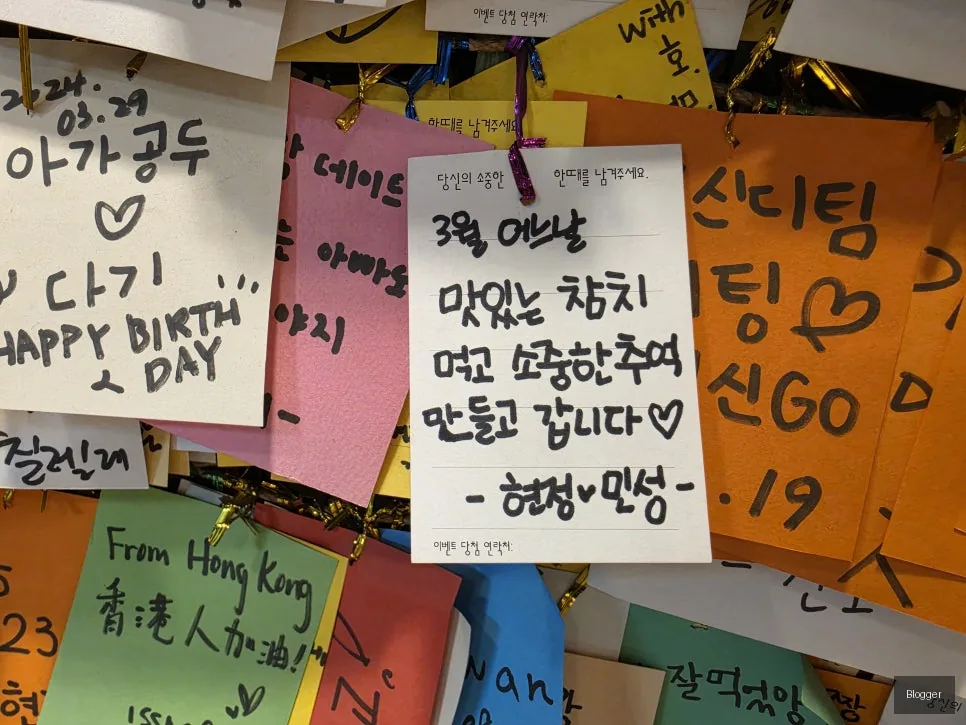 이벤트 당첨 연락처:
with
호.
2024.
03.29
아가 공두
♡
다기
HAPPY BIRTH
DAY
데이트
아빠도
야지
한때를 남겨주세요.
당신의 소중한 한때를 남겨주세요.
3월 어느날
맛있는 참치
먹고 소중한 추억
만들고 갑니다♡
- 현정♥민성 -
이벤트 당첨 연락처:
신디팀
팅♡
신GO
.19
질레일레
From Hong Kong
香港人加油!
23
현
잘먹었암
짱
Blogger